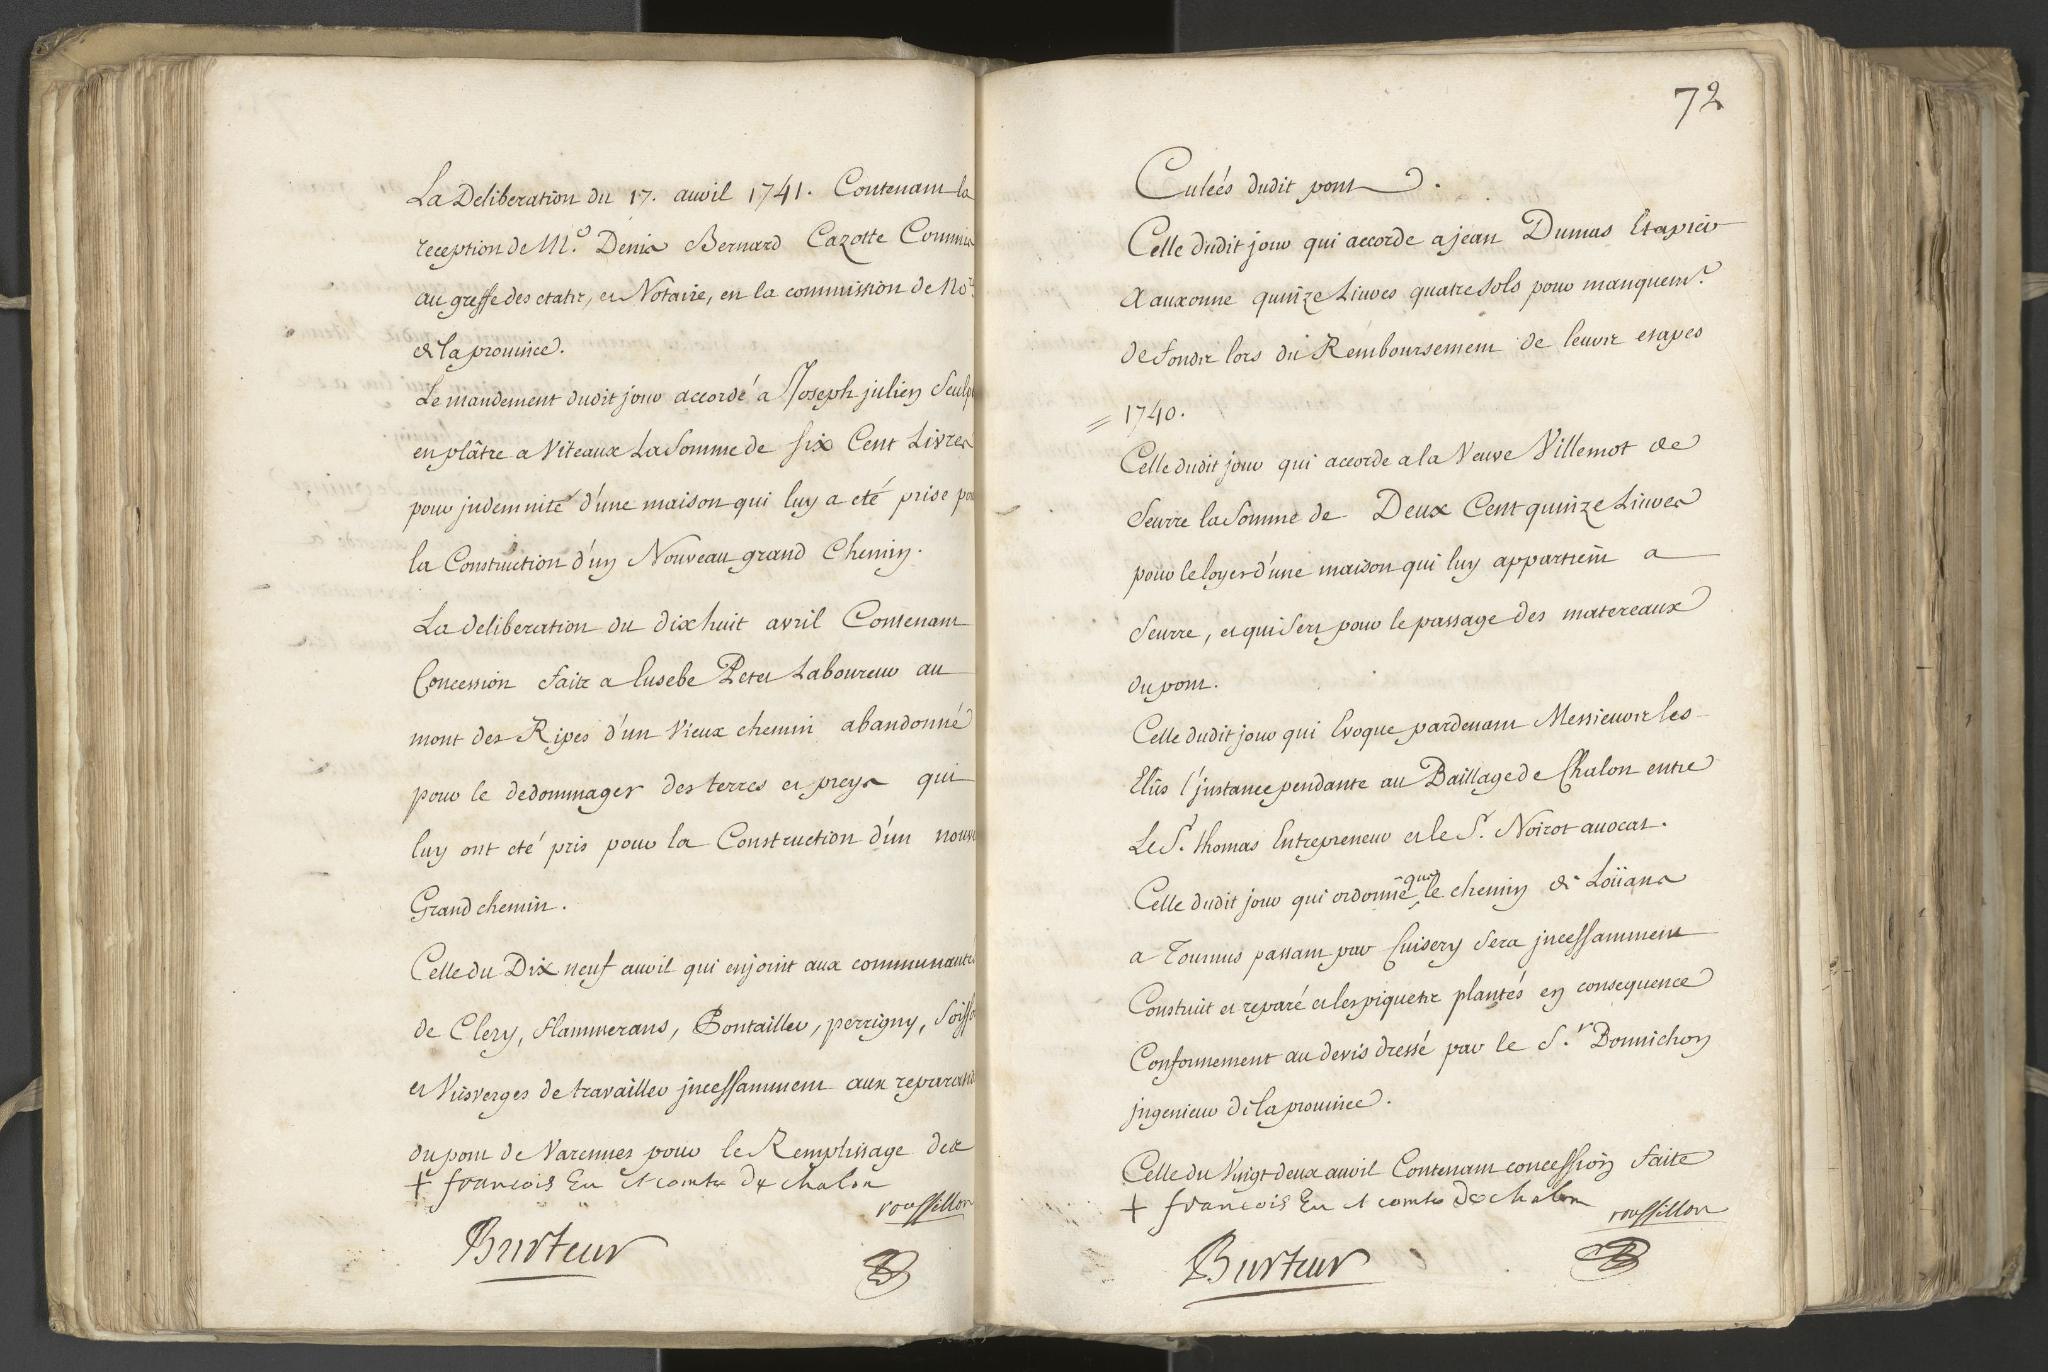 La Deliberation du 17. auvil 1741. Contenam la
reception de M.e Denis Bernard Cazotte Commis
au greffe des etats, et Notaire, en la commission de No.re
de la prouince.
Le mandement dudit jour accordé a Joseph julien Sculp
en plâtre a Viteaux La Somme de Six Cent Livres
pour jndemnité d'une maison qui luy a eté prise pou
la Construction d'un Nouveau grand Chemin.
La deliberation du dixhuit avril Contenam
Concession faite a Eusebe Petit Laboureur au
mont des Ripes d'un Vieux chemin abandonné
pour le dedommager des terres et preys qui
luy ont eté pris pour la Construction d'un nouve
Grand chemin.
Celle du Dix neuf auvil qui enjoint aux communauté
de Clery, flammerans, Pontailler, perrigny, Soisso
et Viesverges de travailler jncessamment aux reparations
du pont de Varennes pour le Remplissage des
+ francois Ev et comte de chalon
roussillon
Burteur
72
Culeés dudit pont.
Celle dudit jour qui accorde a jean Dumas Etapier
a auxonne quinze Liures quatre sols pour manquem.t
de fonds lors du Remboursement de leurs etapes
= 1740.
Celle dudit jour qui accorde a la Veuve Villemot de
Seurre la Somme de Deux Cent quinze Liures
pour le loyer d'une maison qui luy appartient a
Seurre, et qui sert pour le passage des matereaux
du pont.
Celle dudit jour qui Evoque pardevant Messieurs les
Elûs l'jnstance pendante au Baillage de Chalon entre
Le S.r thomas Entrepreneur et le S.r Noirot avocat.
Celle dudit jour qui ordonne que le chemin de Loüans
a Tournus passant par Cuisery Sera jncessamment
Construit et reparé et les piquets plantés en consequence
Conformement au devis dressé par le S.r Bonnichon
jngenieur de la prouince.
Celle du Vingt deux auvil Contenam concession faite
+ francois Ev et comte de chalon
roussillon
Burteur